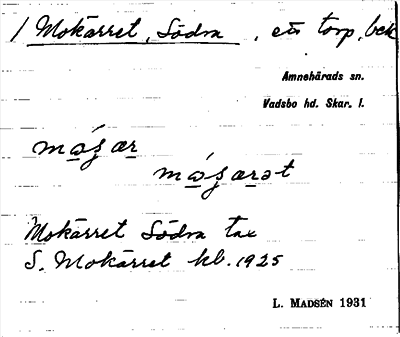 1 Mokärret, Södra, ett torp, bek
Amnehärads sn.
Vadsbo hd. Skar. l.
Mokärret Södra tax
S. Mokärret kb. 1925
L. MADSÉN 1931